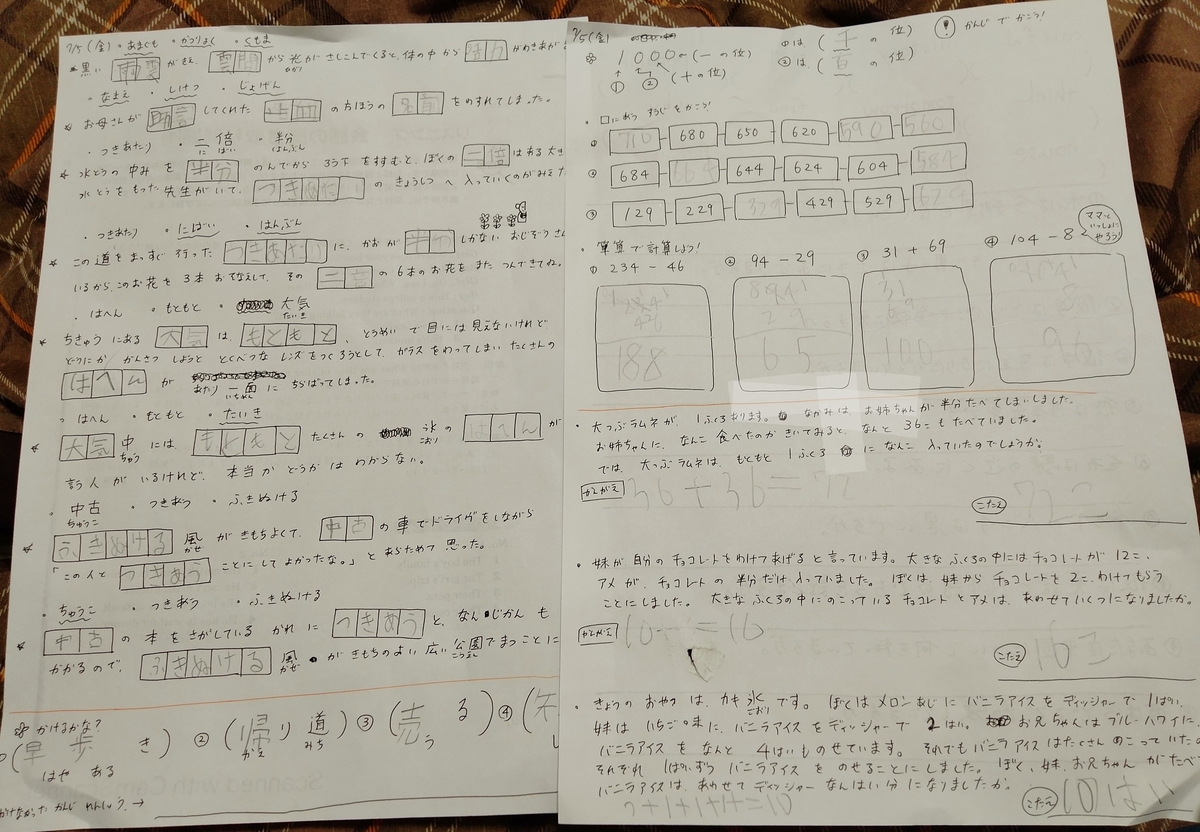 7/5(金) ・あまぐも ・かつりょく ・くもま
★黒い 雨雲 がきえ、雲間 から光がさしこんでくると、体の中から 活力 がわきあが
ひかり
・なまえ ・しけつ ・じょげん
★お母さんが 助言 してくれた 止血 の方ほうの 名前 をわすれてしまった。
・つきあたり ・二倍 ・半分
にばい はんぶん
★水とうの中みを 半分 のんでから ろう下をすすむと、ぼくの 二倍 はある大き
水とうをもった先生がいて、つきあたり の きょうしつへ 入っていくのがみえた
・つきあたり ・にばい ・はんぶん
★この道をまっすぐ行った つきあたり に、かおが 半分 しかない おじぞうさん
いるから、このお花を3本おそなえして、その 二倍 の6本のお花をまたつんできてね。
・はへん ・もともと ・大気
たいき
★ちきゅうにある 大気 は、もともと、とうめいで目には見えないけれど
どうにかかんさつしようと とくべつなレンズをつくろうとして、ガラスをわってしまい たくさんの
はへん が あたり一面に ちらばってしまった。
いちめん
・はへん ・もともと ・たいき
★大気中には、もともと たくさんの 氷の はへん が
ちゅう こおり
言う人がいるけれど、本当かどうかはわからない。
・中古 ・つきあう ・ふきぬける
ちゅうこ
★ふきぬける 風がきもちよくて、中古 の車でドライブをしながら
かぜ
「この人と つきあう ことにしてよかったな。」とあらためて思った。
・ちゅうこ ・つきあう ・ふきぬける
★中古 の本をさがしている かれに つきあう と、なんじかんも
かかるので、ふきぬける 風がきもちのよい広い公園でまつことに
かぜ こうえん
かけるかな?
(早歩き) ②(帰り道) ③(売る) ④(
はや ある かえ みち う
かけなかった かんじ れんしゅう。→
7/5(金)
1000 (一の位)
① ② (十の位)
①は(千の位) かんじでかこう!
②は(百の位)
・□にあう すうじをかこう!
① 710 - 680 - 650 - 620 - 590 - 560
② 684 - 664 - 644 - 624 - 604 - 584
③ 129 - 229 - 329 - 429 - 529 - 629
・筆算で計算しよう!
① 234 - 46 ② 94 - 29 ③ 31 + 69 ④ 104 - 8
ママといっしょにやろう!
188 65 100 96
・大つぶラムネが 1ふくろあります。なかみは、お姉ちゃんが半分たべてしまいました。
お姉ちゃんに、なんこ食べたのかきいてみると、なんと36こもたべていました。
では、大つぶラムネは、もともと1ふくろになんこ入っていたのでしょうか。
かんがえ 36+36=72
こたえ 72こ
・妹が自分のチョコレートをわけてあげると言っています。大きなふくろの中にはチョコレートが12こ、
アメが、チョコレートの半分だけ入っていました。ぼくは、妹からチョコレートを2こ、わけてもらう
ことにしました。大きなふくろの中にのこっているチョコレートとアメは、あわせていくつになりましたか。
かんがえ 10 =16
こたえ 16こ
・きょうのおやつは、カキ氷です。ぼくはメロンあじにバニラアイスをディッシャーで1ぱい、
こおり
妹はいちご味に、バニラアイスをディッシャーで2はい、お兄ちゃんはブルーハワイに、
バニラアイスをなんと4はいものせています。それでもバニラアイスはたくさんのこっていたの
それぞれ1ぱいずつバニラアイスをのせることにしました。ぼく、妹、お兄ちゃんがたべ
バニラアイスは、あわせてディッシャーなんばい分になりましたか。
こたえ 10ぱい